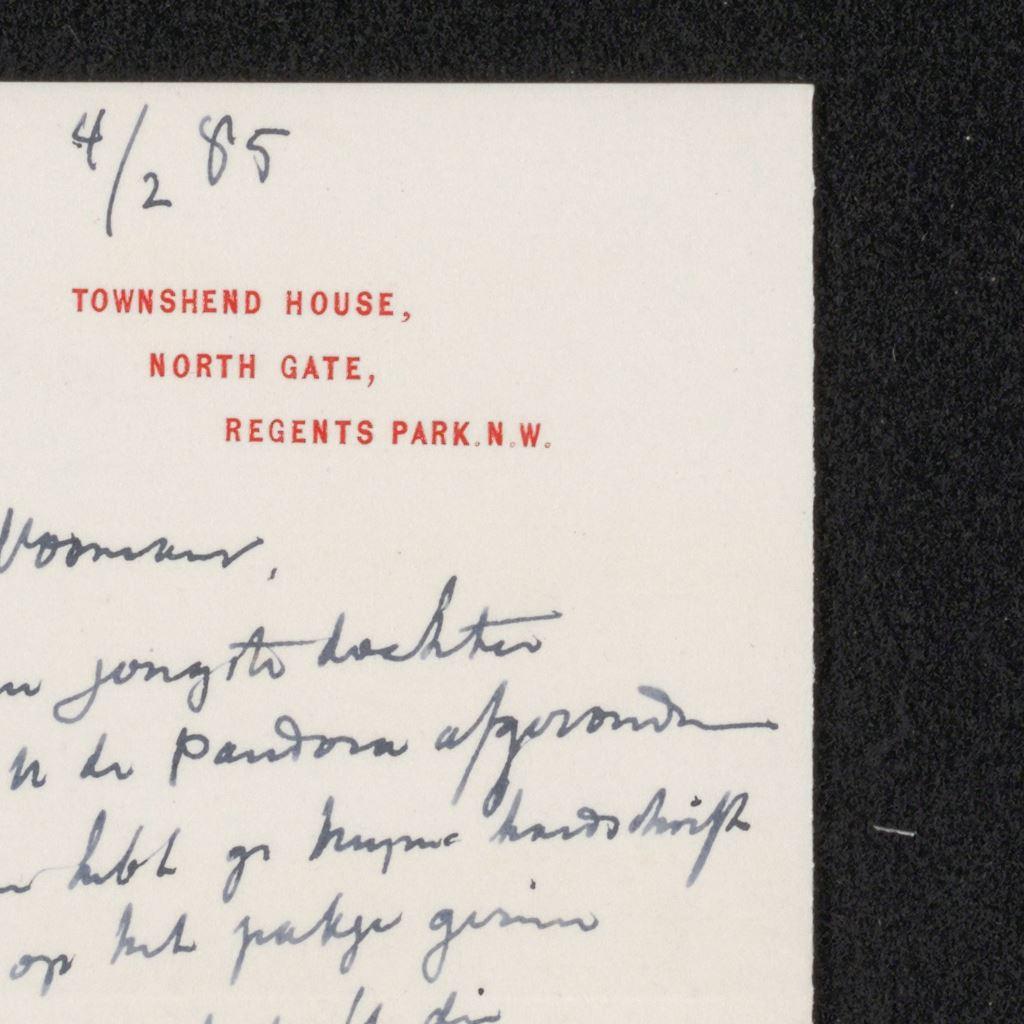 4/2 85
TOWNSHEND HOUSE,
NORTH GATE,
REGENTS PARK.N.W.
Vosmaer,
jongste dochter
de Pandora afgezonden
hebt ge mijne handschrift
op het pakje gezien
die